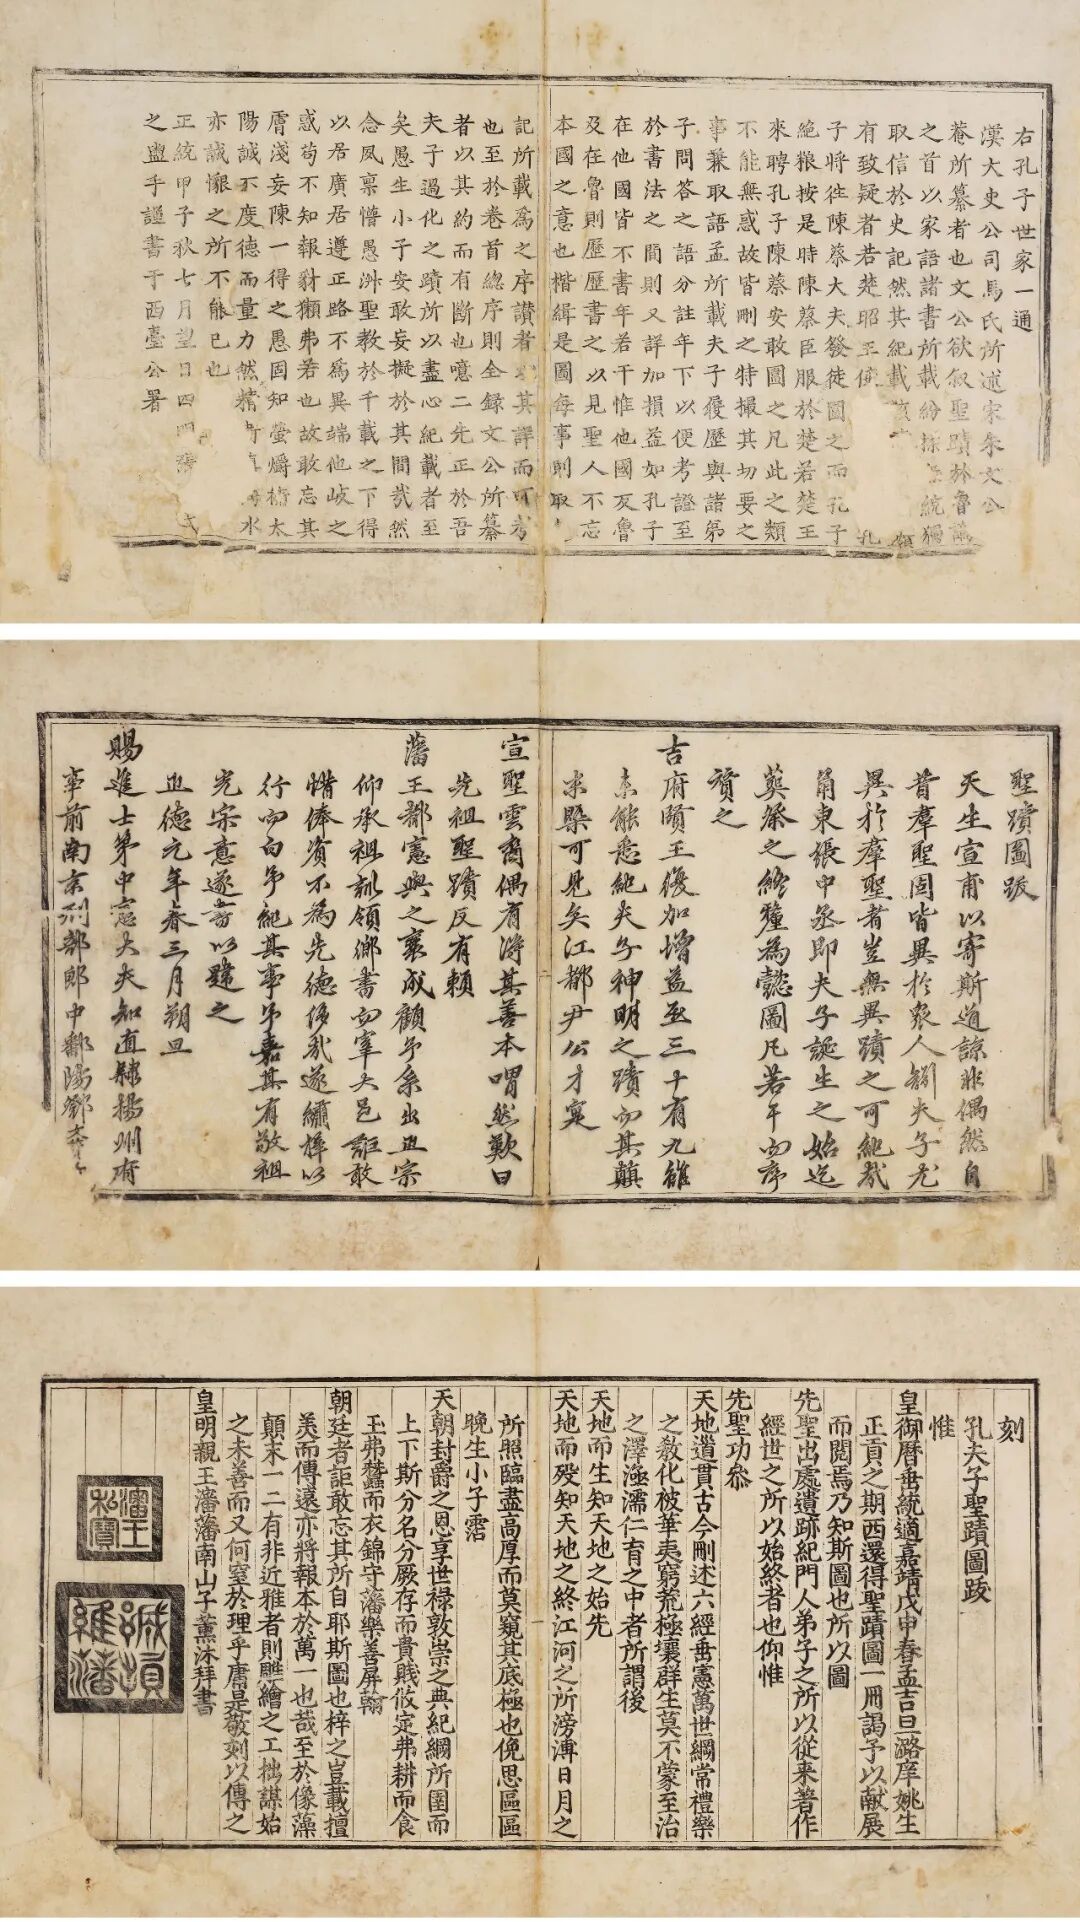 右孔子世家一通
漢大史公司馬氏所述宋朱文公
菴所纂者也文公欲叙聖蹟於魯論
之首以家語諸書所載紛採統獨
取信於史記然其紀載
有致疑者若楚昭王使孔
子將往陳蔡大夫發徒圍之而孔子
絶粮按是時陳蔡臣服於楚若楚王
來聘孔子陳蔡安敢圍之凡此之類
不能無惑故皆刪之特撮其切要之
事兼取語孟所載夫子履歷與諸弟
子問答之語分註年下以便考證至
於書法之間則又詳加損益如孔子
在他國皆不書年若干惟他國反魯
及在魯則歷歷書之以見聖人不忘
本國之意也楷緝是圖每事則取
記所載為之序讃者其詳而可考
也至於卷首總序則全録文公所纂
者以其約而有斷也噫二先正於吾
夫子過化之蹟所以盡心紀載者至
矣愚生小子安敢妄擬於其間哉然
念夙稟懵愚洲聖教於千載之下得
以居廣居遵正路不為異端他岐之
惑苟不知報豺獺弗若也故敢忘其
膚淺妄陳一得之愚固知螢爝增太
陽誠不度德而量力然精水
亦誠懇之所不能已也
正統甲子秋七月望日四明
之盥手謹書于西臺公署
聖蹟圖跋
天生宣甫以寄斯道諒非偶然自
昔羣聖固皆異於衆人矧夫子尤
異於羣聖者豈無異蹟之可紀哉
甬東張中丞即夫子誕生之始迄
葬祭之終釐為懿圖凡若干而序
賛之
吉府頤王復加増益至三十有九雖
未能悉紀夫子神明之蹟而其顛
末槩可見矣江都尹公才寔
宣聖雲裔偶有得其善本喟然歎曰
先祖聖蹟反有頼
藩王都憲與之褒成顧予系出正宗
仰承祖訓領鄉書而宰大邑詎敢
惜俸資不為先德侈哉遂繡梓以
行而句予紀其事予嘉其有敬祖
光宗意遂書以疑之
正德元年春三月朔旦
賜進士第中憲大夫知直隷揚州府
事前南京刑部郎中鄱陽鄧
刻
孔夫子聖蹟圖跋
惟
皇御曆垂統適嘉靖戊申春孟吉旦潞庠姚生
正貢之期西還得聖蹟圖一冊謁予以獻展
而閱焉乃知斯圖也所以圖
先聖出處遺跡紀門人弟子之所以從来著作
經世之所以始終者也仰惟
先聖功叅
天地道貫古今刪述六經垂憲萬世綱常禮樂
之教化被華夷窮荒極壤群生莫不蒙至治
之澤涵濡仁育之中者所謂後
天地而生知天地之始先
天地而殁知天地之終江河之所滂溥日月之
所照臨盡高厚而莫窺其底極也俛思區區
晚生小子霑
天朝封爵之恩享世禄敦崇之典紀綱所圉而
上下斯分名分厥存而貴賤攸定弗耕而食
玉弗蠶而衣錦守藩樂善屏翰
朝廷者詎敢忘其所自耶斯圖也梓之豈載擅
美而傳遠亦將報本於萬一也哉至於像藻
顛末一二有非近雅者則雕繪之工拙謀始
之未善而又何窒於理乎庸是敬刻以傳之
皇明親王瀋藩南山子薫沐拜書
瀋王私寶
誠損維藩